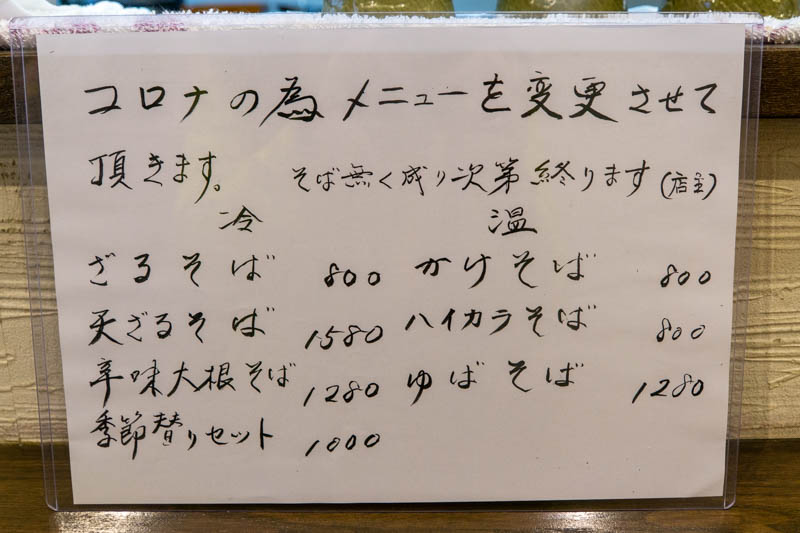 コロナの為メニューを変更させて
頂きます。 そば無く成り次第終ります(店主)
冷 温
ざるそば 800 かけそば 800
天ざるそば 1580 ハイカラそば 800
辛味大根そば 1280 ゆばそば 1280
季節替りセット 1000